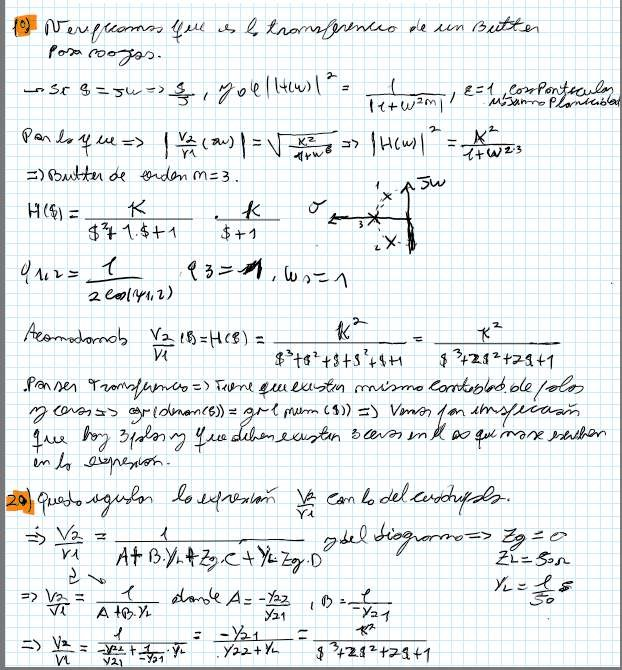 1o) Verifiquemos que es la transferencia de un Butter
para rangos.
→ Si $ = Jω => $/J , y de |H(ω)|² = 1/|1+ω²ᵐ| , ε=1,
Por lo que => |V2/V1 (Jω)| = √(K²/(1+ω⁶)) => |H(ω)|² = K²/(1+ω²·³)
=> Butter de orden m=3.
H($) = K/($²+1.$+1) . K/($+1) σ 1 3 2 Jω
φ1,2 = 1/(2cos(ψ1,2)) φ3 = 1, ω0 = 1
Acomodamos V2/V1 ($) = H($) = K²/($³+$²+$+$²+$+1) = K²/($³+2$²+2$+1)
. Por ser transferencia => Tiene que existir misma cantidad de polos
y ceros => gr(denom($)) = gr(num($)) => Vemos por inspección
que hay 3 polos y que deben existir 3 ceros en el ∞ que no se escriben
en la expresión.
2o) Puedo igualar la expresión V2/V1 con la del cuadripolo.
=> V2/V1 = 1/(A+B.YL+Zg.C+YL.Zg.D) y del diagrama => Zg = 0
ZL = 50Ω
YL = 1/50
=> V2/V1 = 1/(A+B.YL) donde A = -Y22/Y21 , B = 1/-Y21
=> V2/V1 = 1/(-Y22/Y21 + 1/-Y21 . YL) = -Y21/(Y22+YL) = K²/($³+2$²+2$+1)